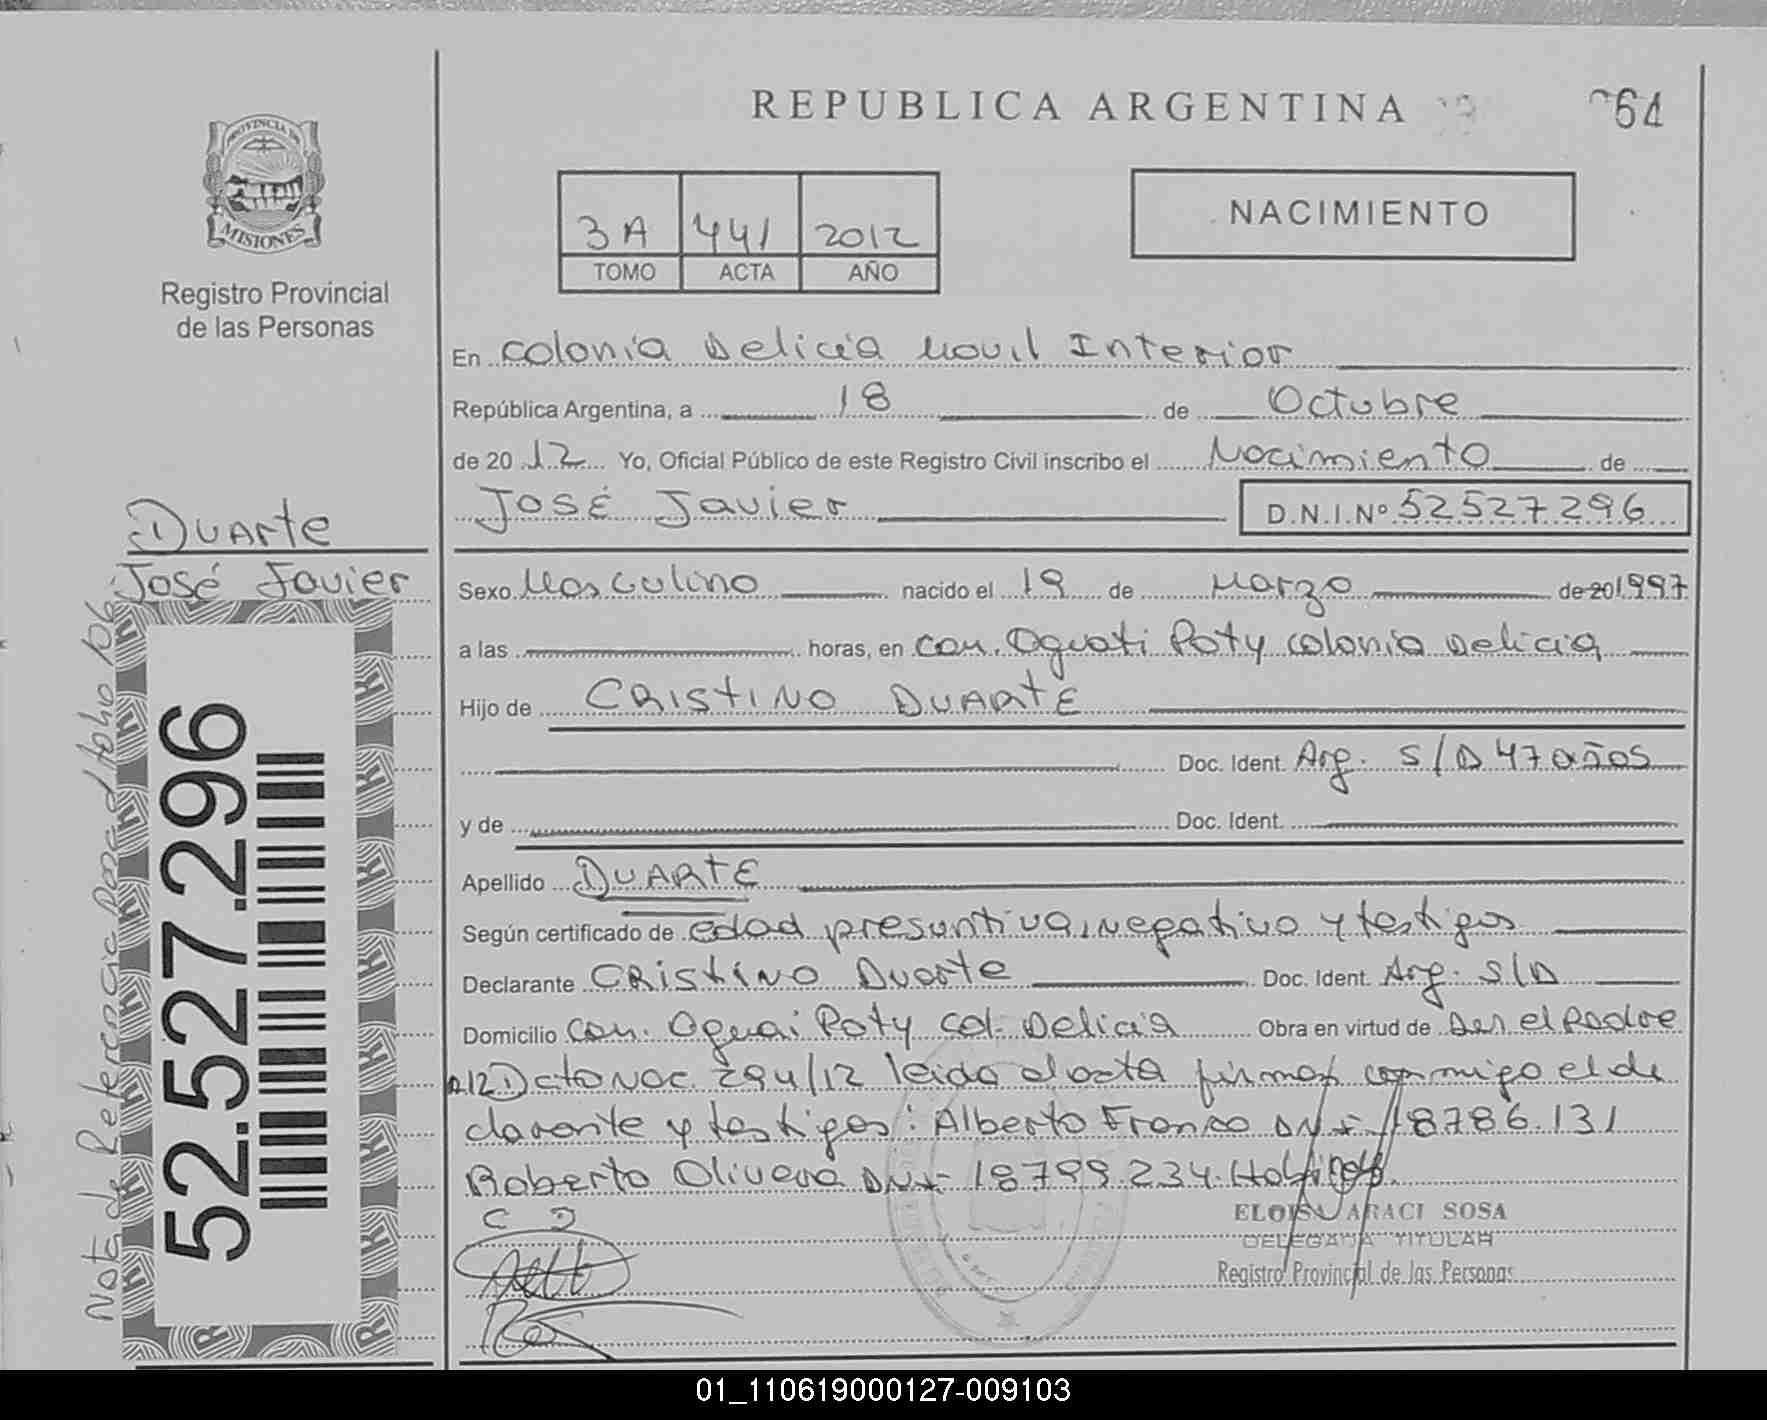 REPUBLICA ARGENTINA
64
PROVINCIA DE
MISIONES
Registro Provincial
de las Personas
3A 441 2012
TOMO ACTA AÑO
NACIMIENTO
En Colonia Delicia Movil Interior
República Argentina, a 18 de Octubre
de 2012 Yo, Oficial Público de este Registro Civil inscribo el Nacimiento de
José Javier D.N.I.Nº 52527296
Duarte
José Javier
Sexo Masculino nacido el 19 de Marzo de 20 1997
a las horas, en Com. Oguati Poty Colonia Delicia
Hijo de CRISTINO DUARTE
Doc. Ident. Arg. S/D 47 años
y de Doc. Ident.
Apellido DUARTE
Según certificado de edad presuntiva, negativo y testigos
Declarante CRISTINO Duarte Doc. Ident. Arg. S/D
Domicilio Com. Oguai Poty Col. Delicia Obra en virtud de ser el Padre
Dcto Nac. 294/12 leido el acta firman conmigo el de
clarante y testigos: Alberto Franco DNI 18786.131
Roberto Olivera DNI 18799.234.
C D
ELOISA ARACI SOSA
DELEGADA TITULAR
Registro Provincial de las Personas
Nota de Referencia
52.527.296
01_110619000127-009103